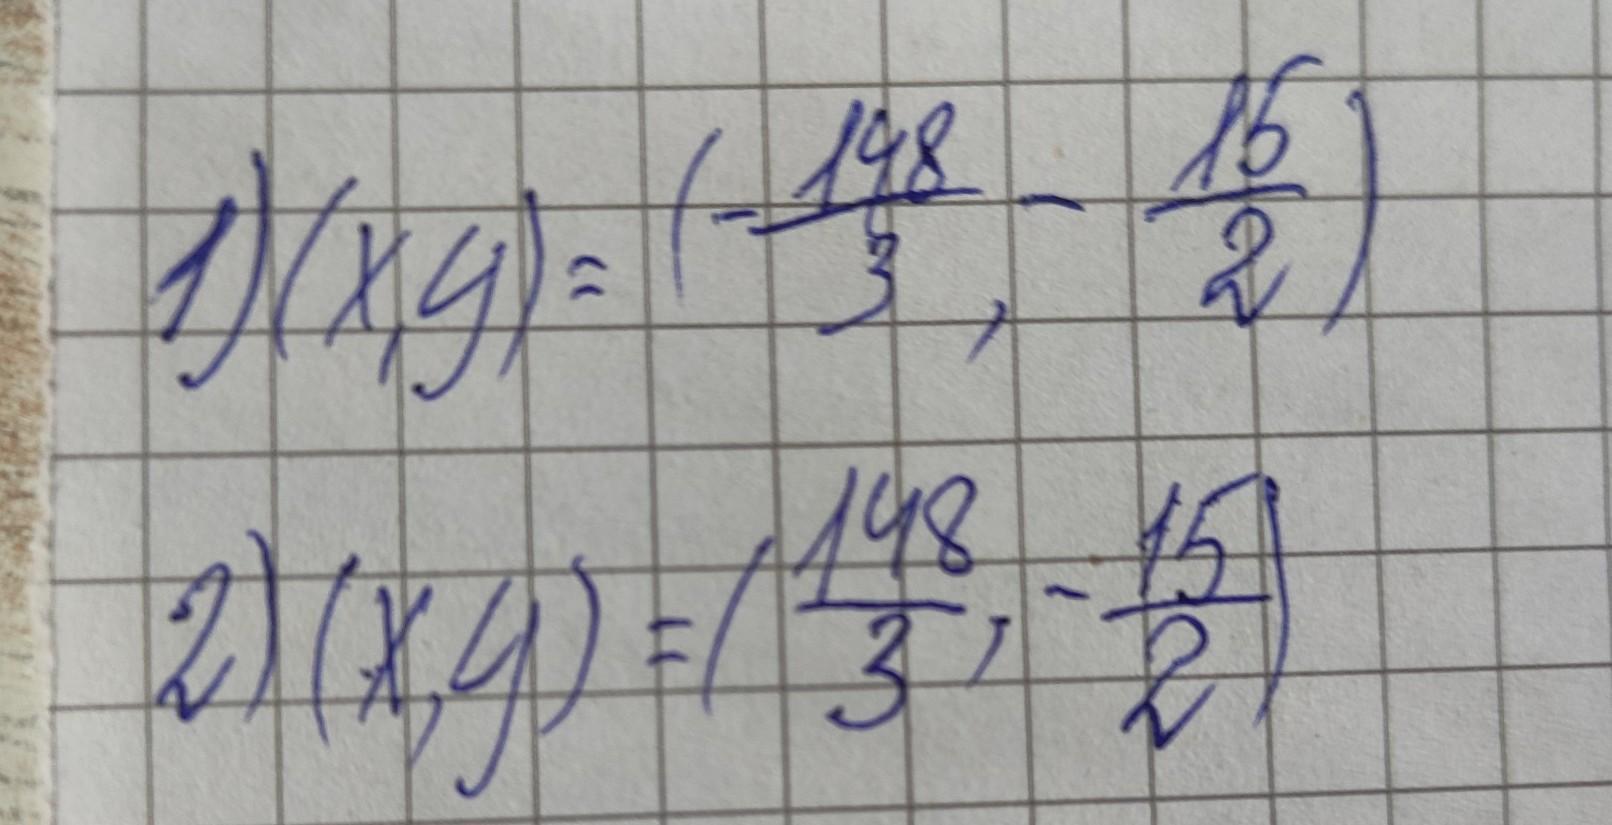 1) (x,y) = (-148/3, -15/2)
2) (x,y) = (148/3, -15/2)